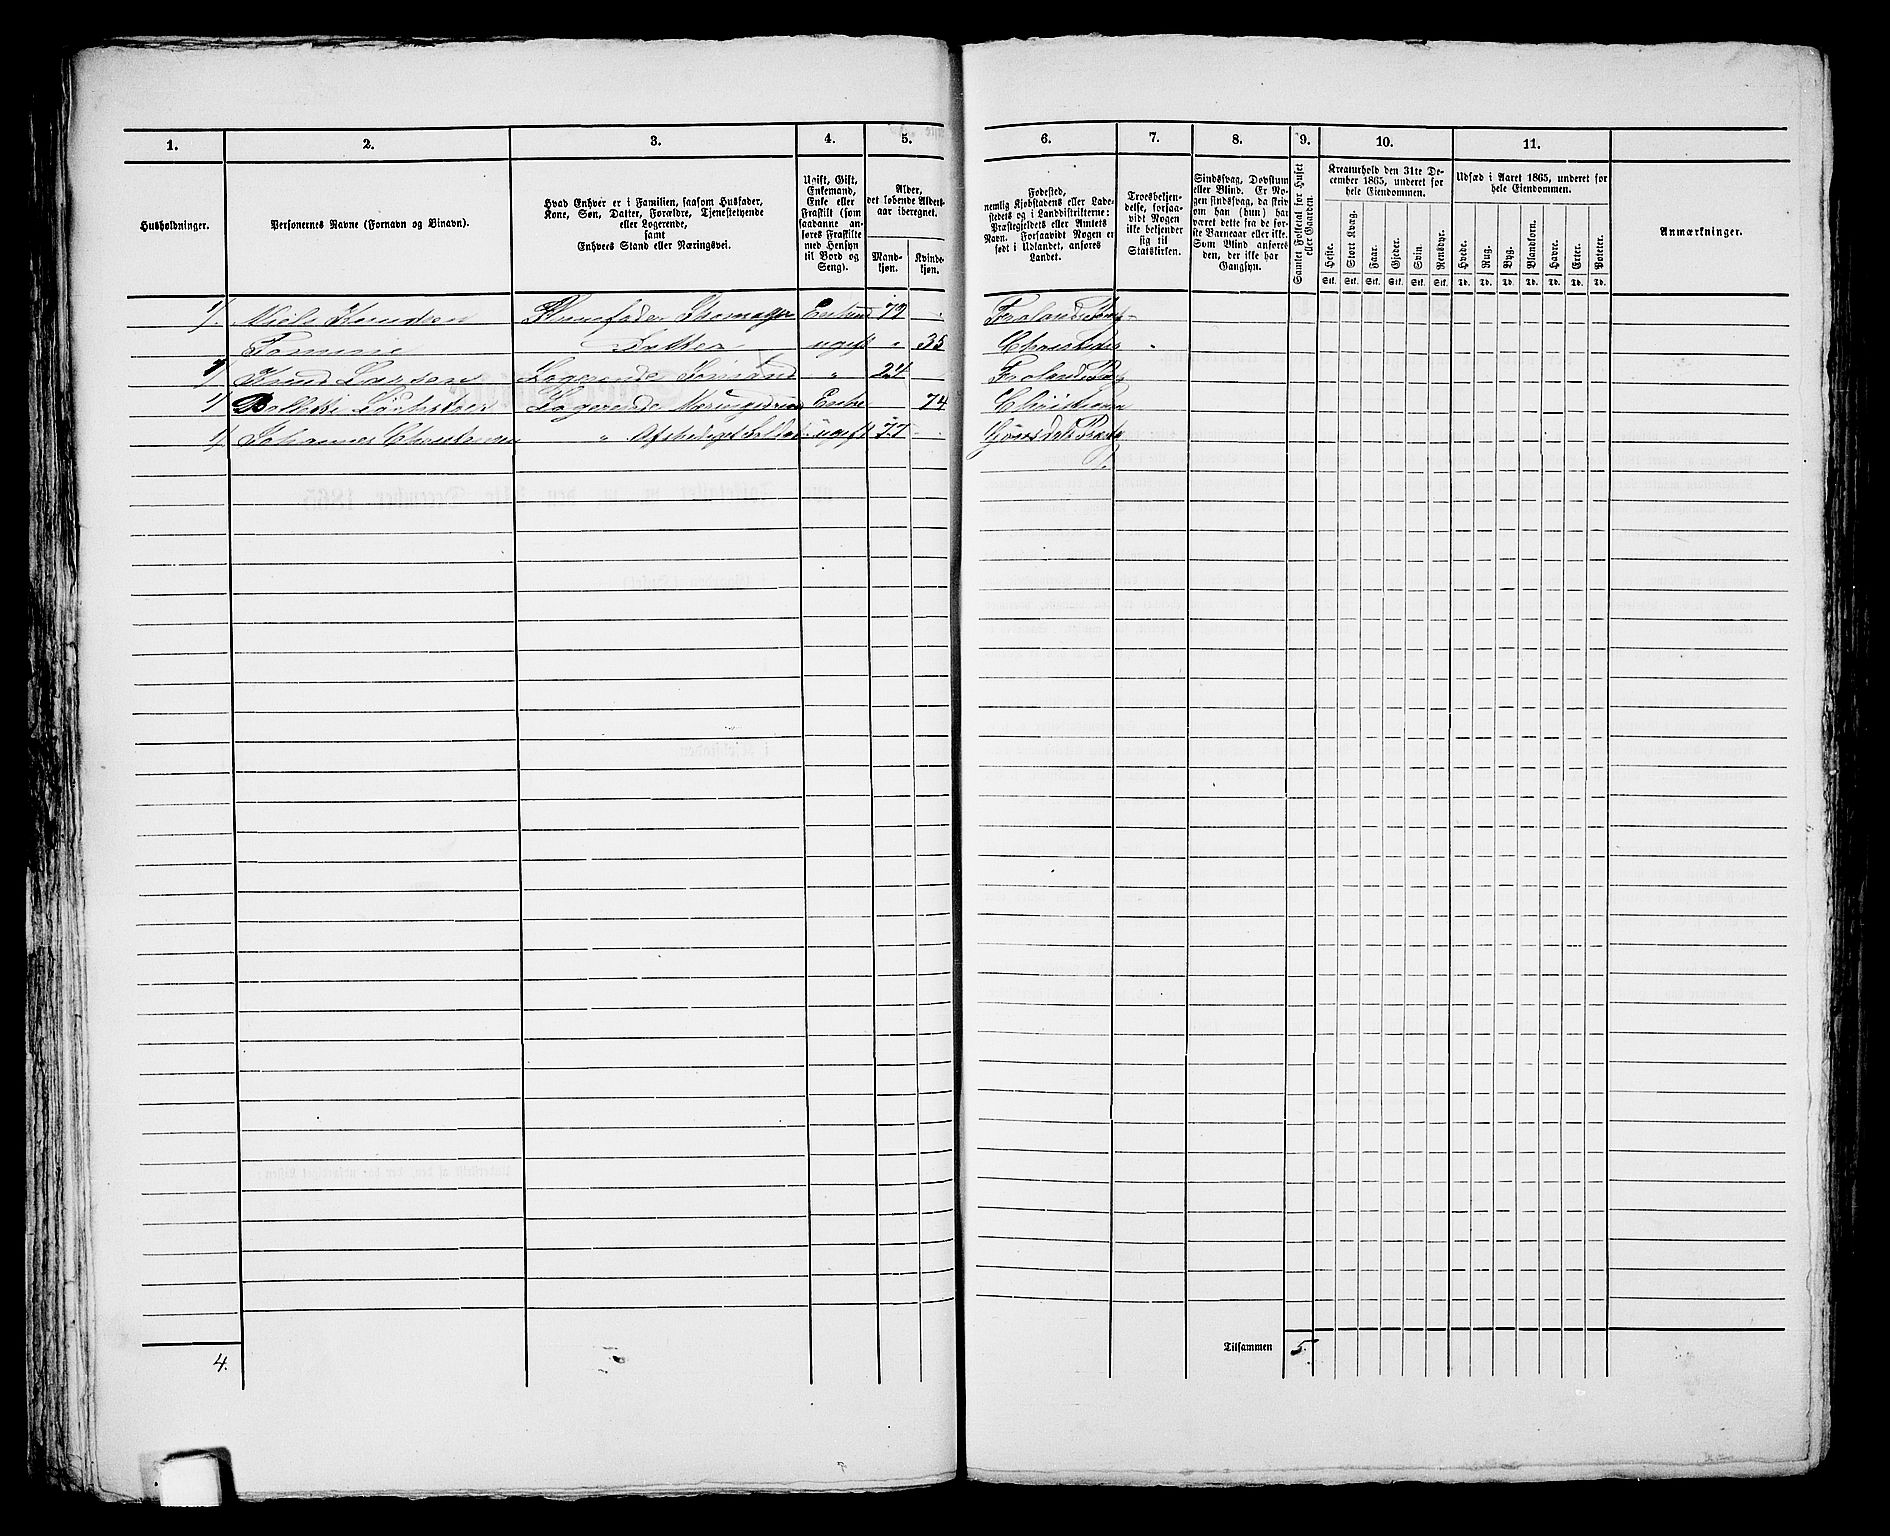 1. 2. 3. 4. 5. 6. 7. 8. 9. 10. 11.
Husholdninger.
Personernes Navne (Fornavn og Binavn).
Hvad Enhver er i Familien, saasom Husfader,
Kone, Søn, Datter, Forældre, Tjenestetyende
eller Logerende,
samt
Enhvers Stand eller Næringsvei.
Ugift, Gift,
Enkemand,
Enke eller
Fraskilt (som
saadanne an-
føres Fraskilte
med Hensyn
til Bord og
Seng).
Alder,
det løbende Alders-
aar iberegnet.
Mand-
kjøn.
Kvinde-
kjøn.
Fødested,
nemlig Kjøbstadens eller Lade-
stedets og i Landdistrikterne:
Præstegjeldets eller Amtets
Navn. Forsaavidt Nogen er
født i Udlandet, anføres
Landet.
Troesbekjen-
delse, forsaa-
vidt Nogen
ikke bekjender
sig til
Statskirken.
Sindssvag, Døvstum
eller Blind. Er No-
gen sindssvag, da skriv
om han (hun) har
været dette fra de før-
ste Barneaar eller ikke.
Som Blind anføres
den, der ikke har
Gangsyn.
Samlet Folketal for Huset
eller Gaarden.
Kreaturhold den 31te De-
cember 1865, underet for
hele Eiendommen.
Heste. Stort Kvæg. Faar. Gjeder. Svin. Rensdyr.
Stk. Stk. Stk. Stk. Stk. Stk.
Udsæd i Aaret 1865, underet for
hele Eiendommen.
Hvede. Rug. Byg. Blandkorn. Havre. Erter. Poteter.
Td. Td. Td. Td. Td. Td. Td.
Anmærkninger.
1/. Niels Knudsen Huusfader Skomager Enkem 73
Datter ugift " 35
1/ Knud Larsen Logerende Sømand " 24
1/ Logerende Enke 74
1/ Johannes Christensen " ugift 77
Tilsammen 5.
4.